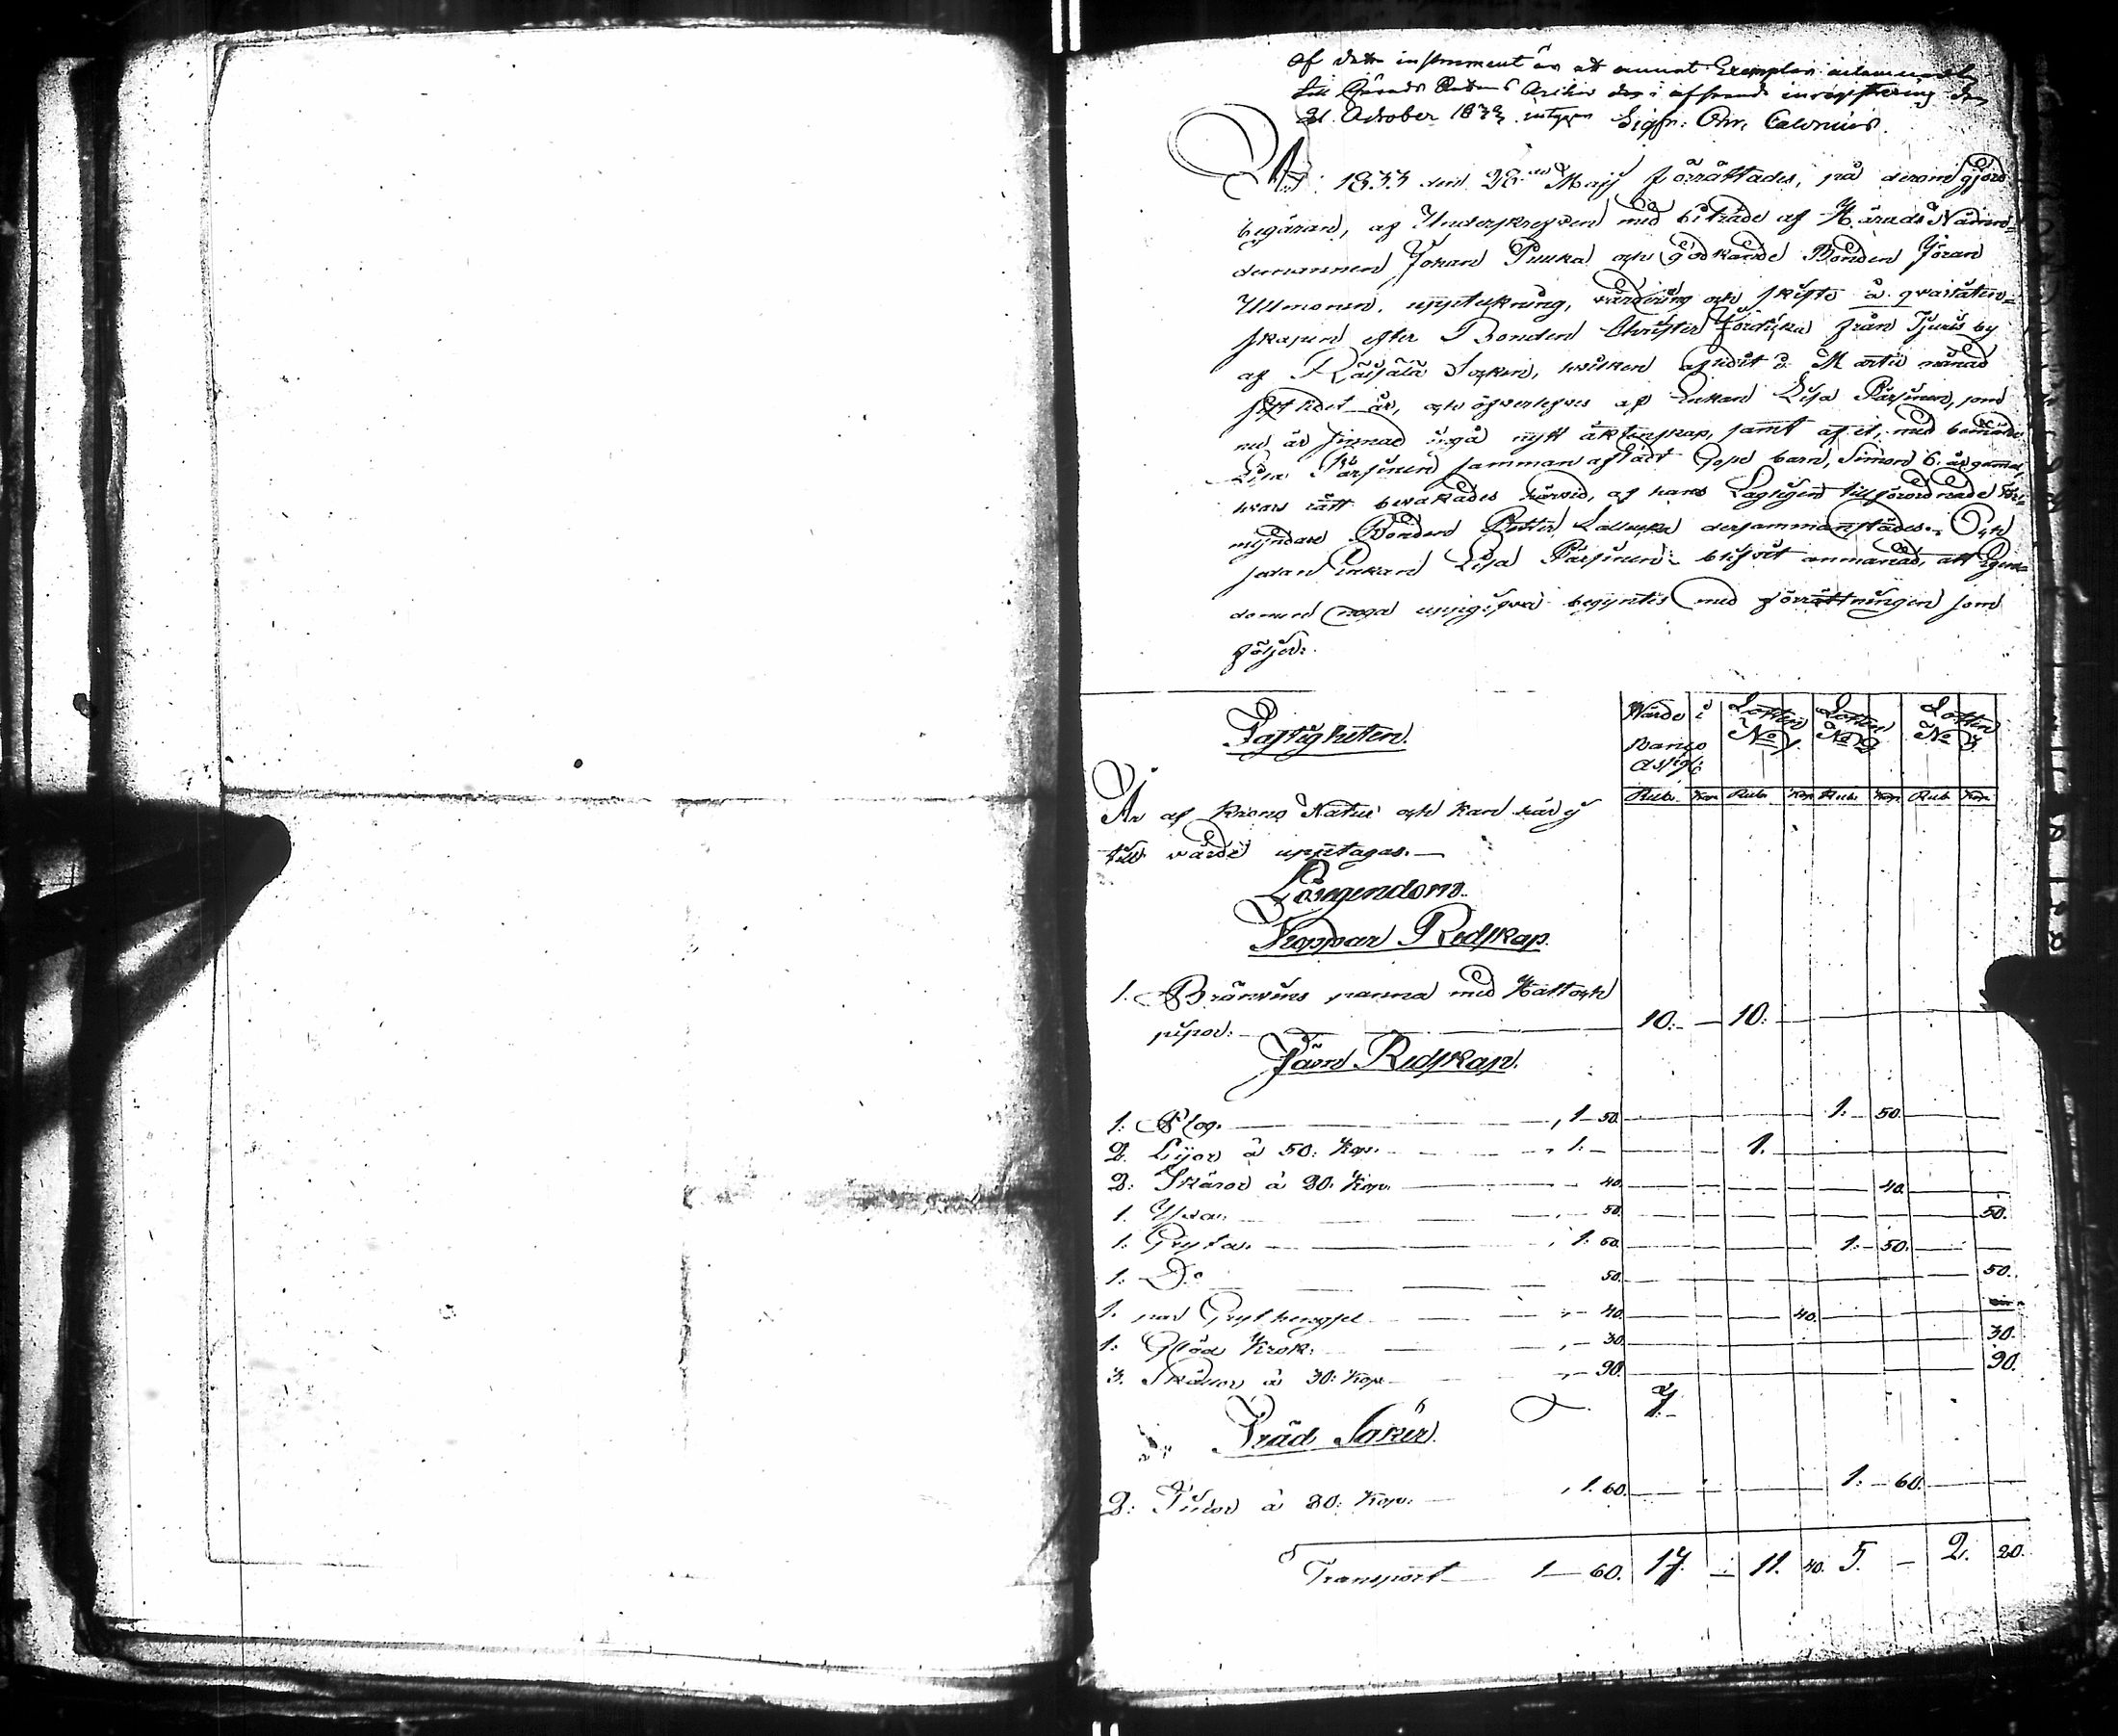 Af detta instrument är ett annat Exemplar inlemnadt
till Härads Rättens Arkiv der i afseende inregistrering den
31. October 1833 intygar Sigfr: Chr. Calonius.
År 1833 den 28de Maji förrättades, på derom gjord
begäran, af Underskrefven med biträde af Härads Nämnde=
demannen Johan Puuka och Godkände Bonden Jöran
Ullmonen, uppteckning, värdering och skifte å qvarlåten=
skapen efter Bonden Christer från by
af Räisälä Socken, hvilken aflidit i Martii månad
sistledit år, och öfverlefves af Enkan Lisa Pärsinen, som
nu är sinnad ingå nytt äktenskap, samt af et, med bemälde
Lisa Pärsinen sammanafladt barn, Simon 6. år gamal,
hvars rätt bevakades härvid, af hans Lagligen tillförordnade För-
myndare Bonden Petter dersammanstädes. Och
sedan Enkan Lisa Pärsinen blifvit anmanad, att Egen=
domen noga uppgifva begyntes med förrättningen som
följer:
Fastigheten. Värde i Banco Assign: Lotten No 1. Lotten No 2 Lotten No 3
Rub. Kop Rub. Kop Rub. Kop Rub Kop
Är af Krono Natur och kan här ej
till värde upptagas.
Lösegendom.
Koppar Redskap.
1. Bränvins panna med Hatt och
pipor. 10. 10.
Järn Redskap.
1. Plog. 1 50. 1. 50.
2. Lijor à 50. Kop. 1. 1.
2: Skäror à 20. Kop. 40. 40.
1. Yxa. 50. 50.
1. Gryta. 1. 50. 1. 50.
1. Do 50. 50.
1. par Grythengsel 40. 40.
1. Glöd Krok. 30. 30.
3. à 30: Kop. 90. 90.
7.
Träd Saker.
2: à 80: Kop. 1. 60. 1. 60.
Transport 1 60. 17. 11. 40. 5. 2. 20.